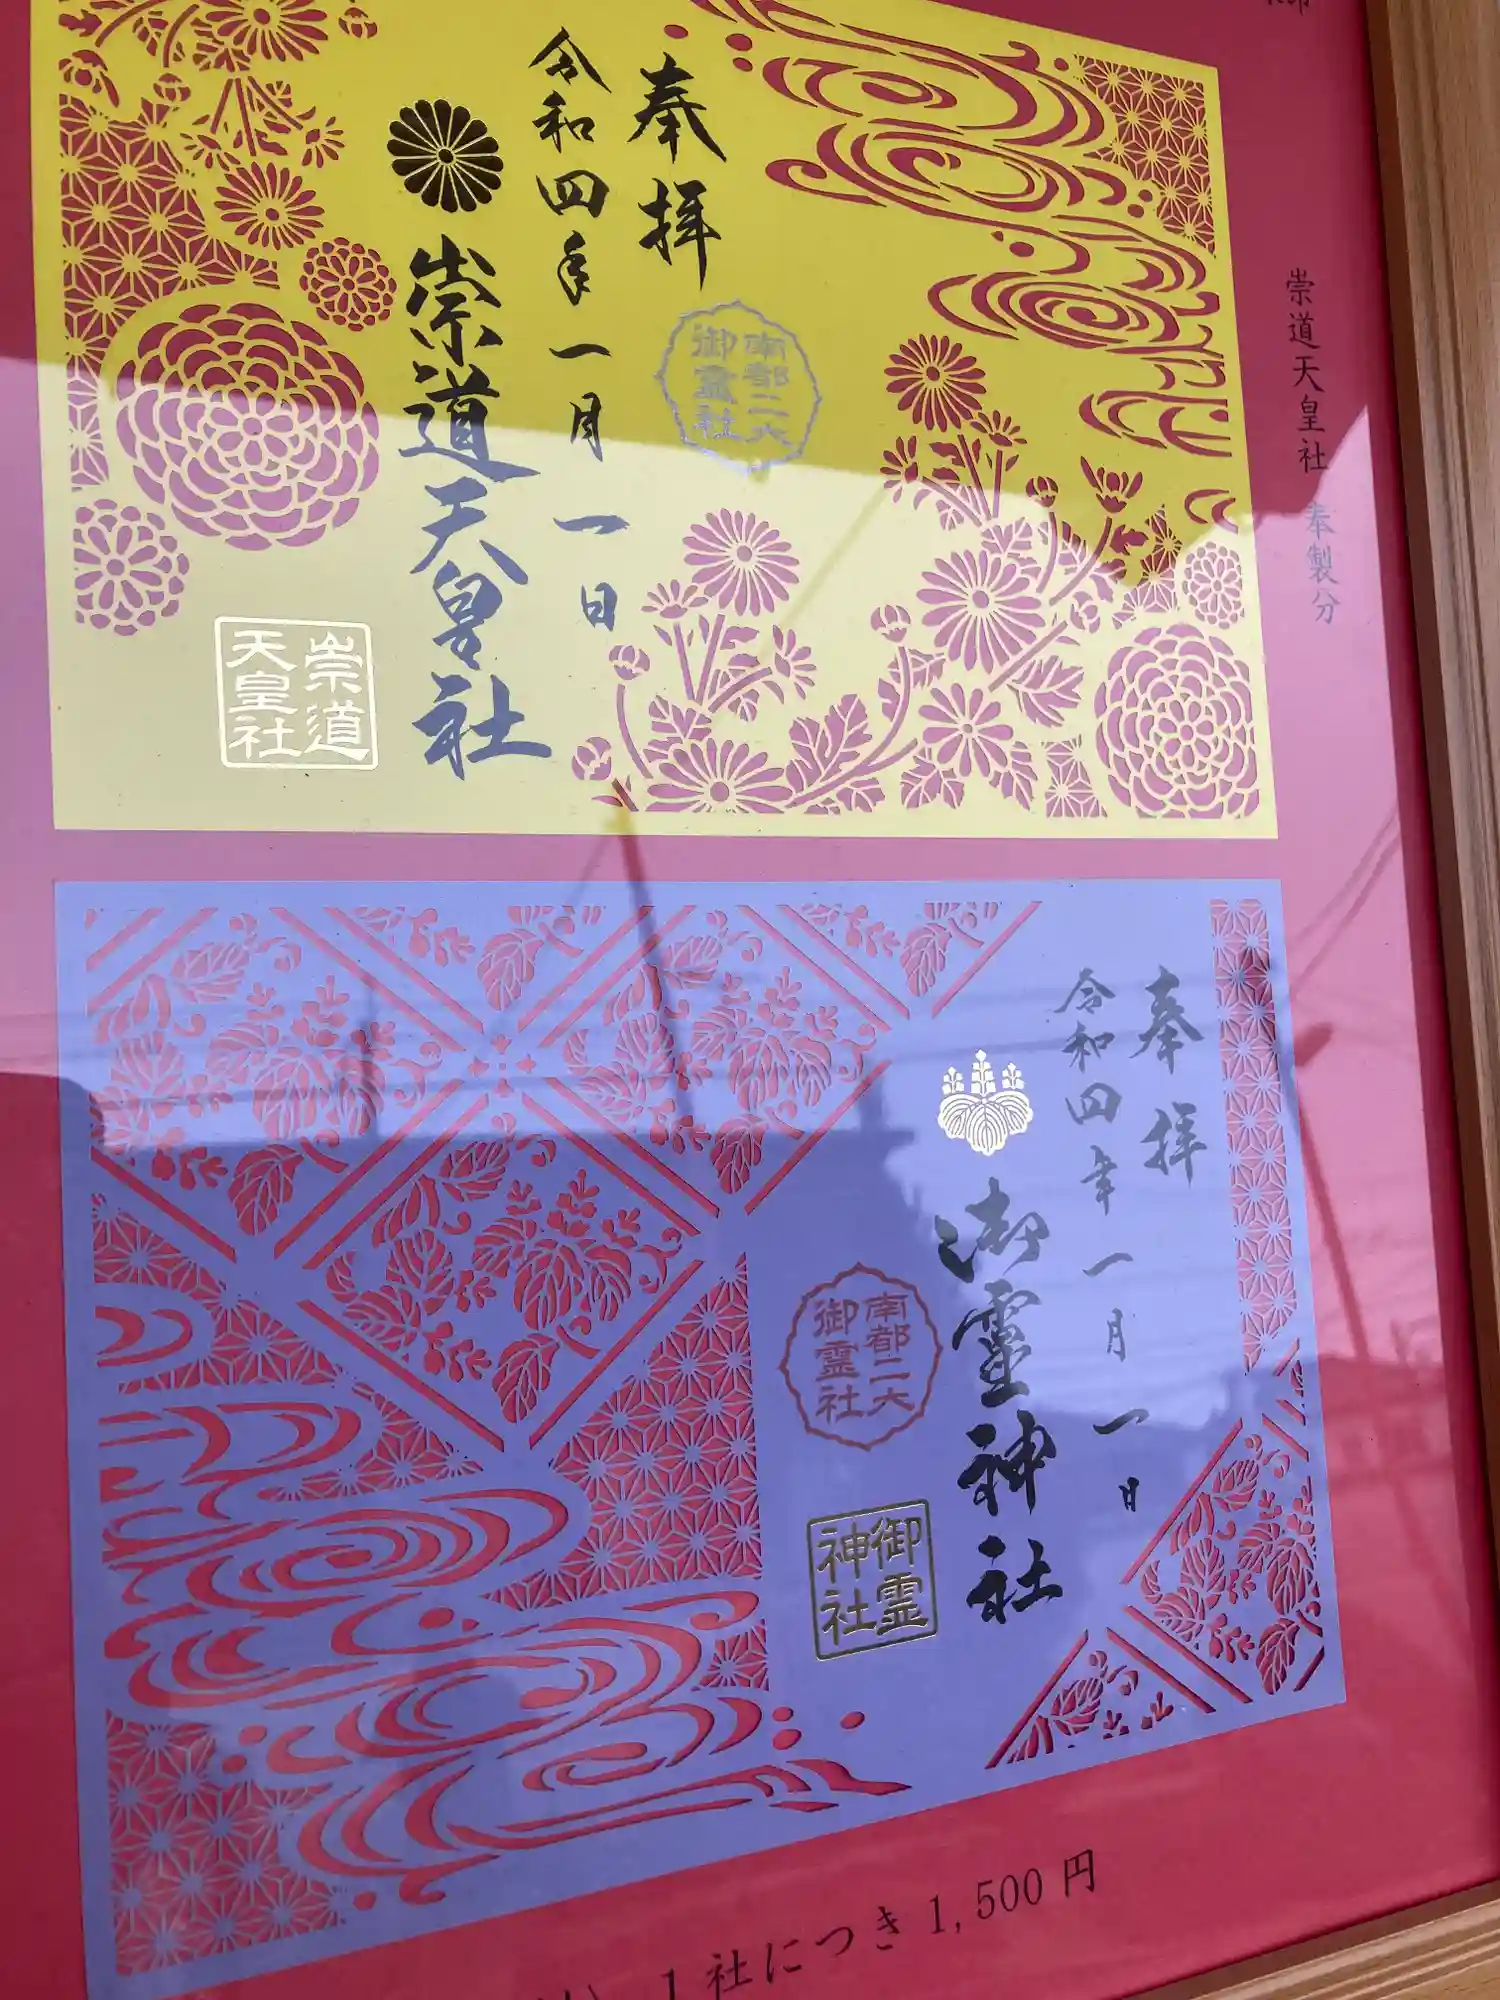 奉拝
令和四年一月一日
崇道天皇社
南都二大
御霊社
崇道
天皇社
崇道天皇社 奉製分
奉拝
令和四年一月一日
御靈神社
南都二大
御霊社
御霊
神社
1社につき1,500円